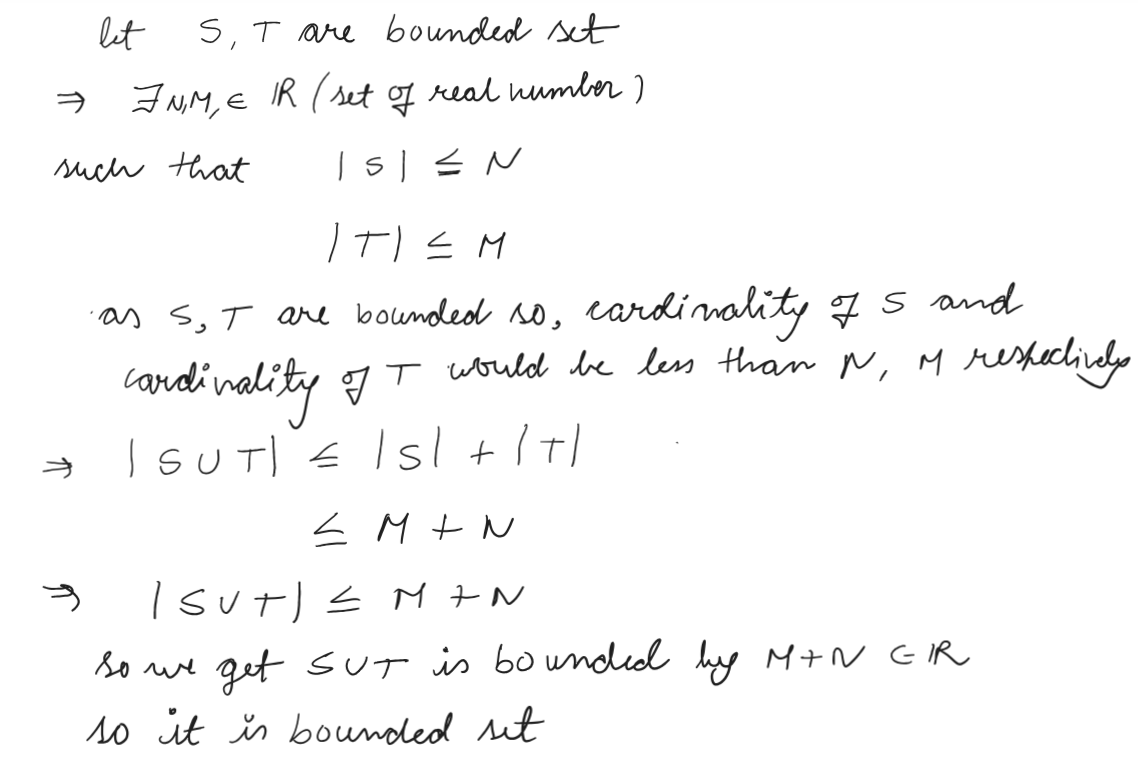 let S, T are bounded set
⇒ ∃ N, M, ∈ ℝ (set of real number)
such that |S| ≤ N
|T| ≤ M
as S, T are bounded so, cardinality of S and
cardinality of T would be less than N, M respectively
⇒ |S ∪ T| ≤ |S| + |T|
≤ M + N
⇒ |S ∪ T| ≤ M + N
so we get S ∪ T is bounded by M + N ∈ ℝ
so it is bounded set